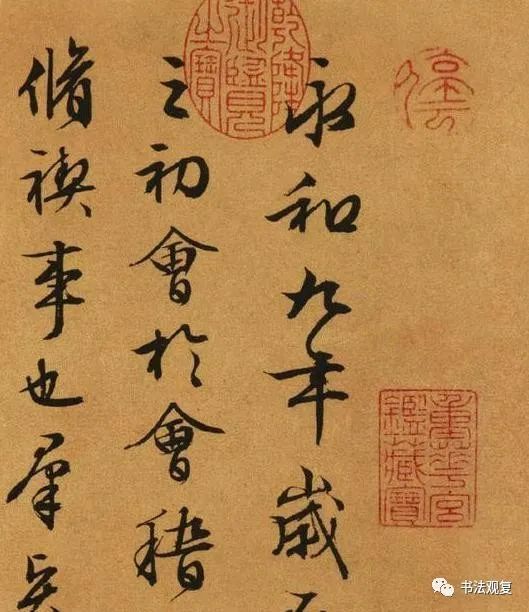 重華宮
鑑藏寶
乾隆
御覽
之寶
永和九年歲
之初會於會稽
脩禊事也羣
书法观复